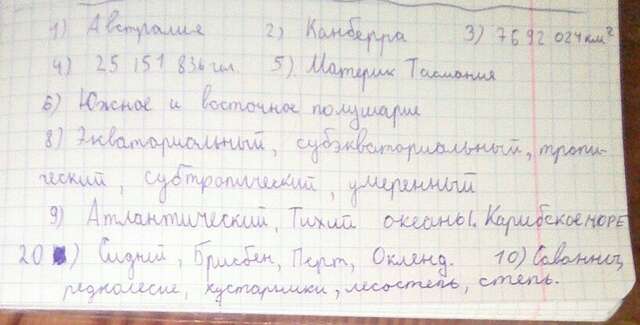 1) Австралия 2) Канберра 3) 7692 024 км²
4) 25 151 836 чел. 5) Материк Тасмания
6) Южное и восточное полушарие
8) Экваториальный, субэкваториальный, тропи-
ческий, субтропический, умеренный
9) Атлантический, Тихий океаны. Карибское море
20) Сидней, Брисбен, Перт, Окленд. 10) Саванны,
редколесие, кустарники, лесостепь, степь.